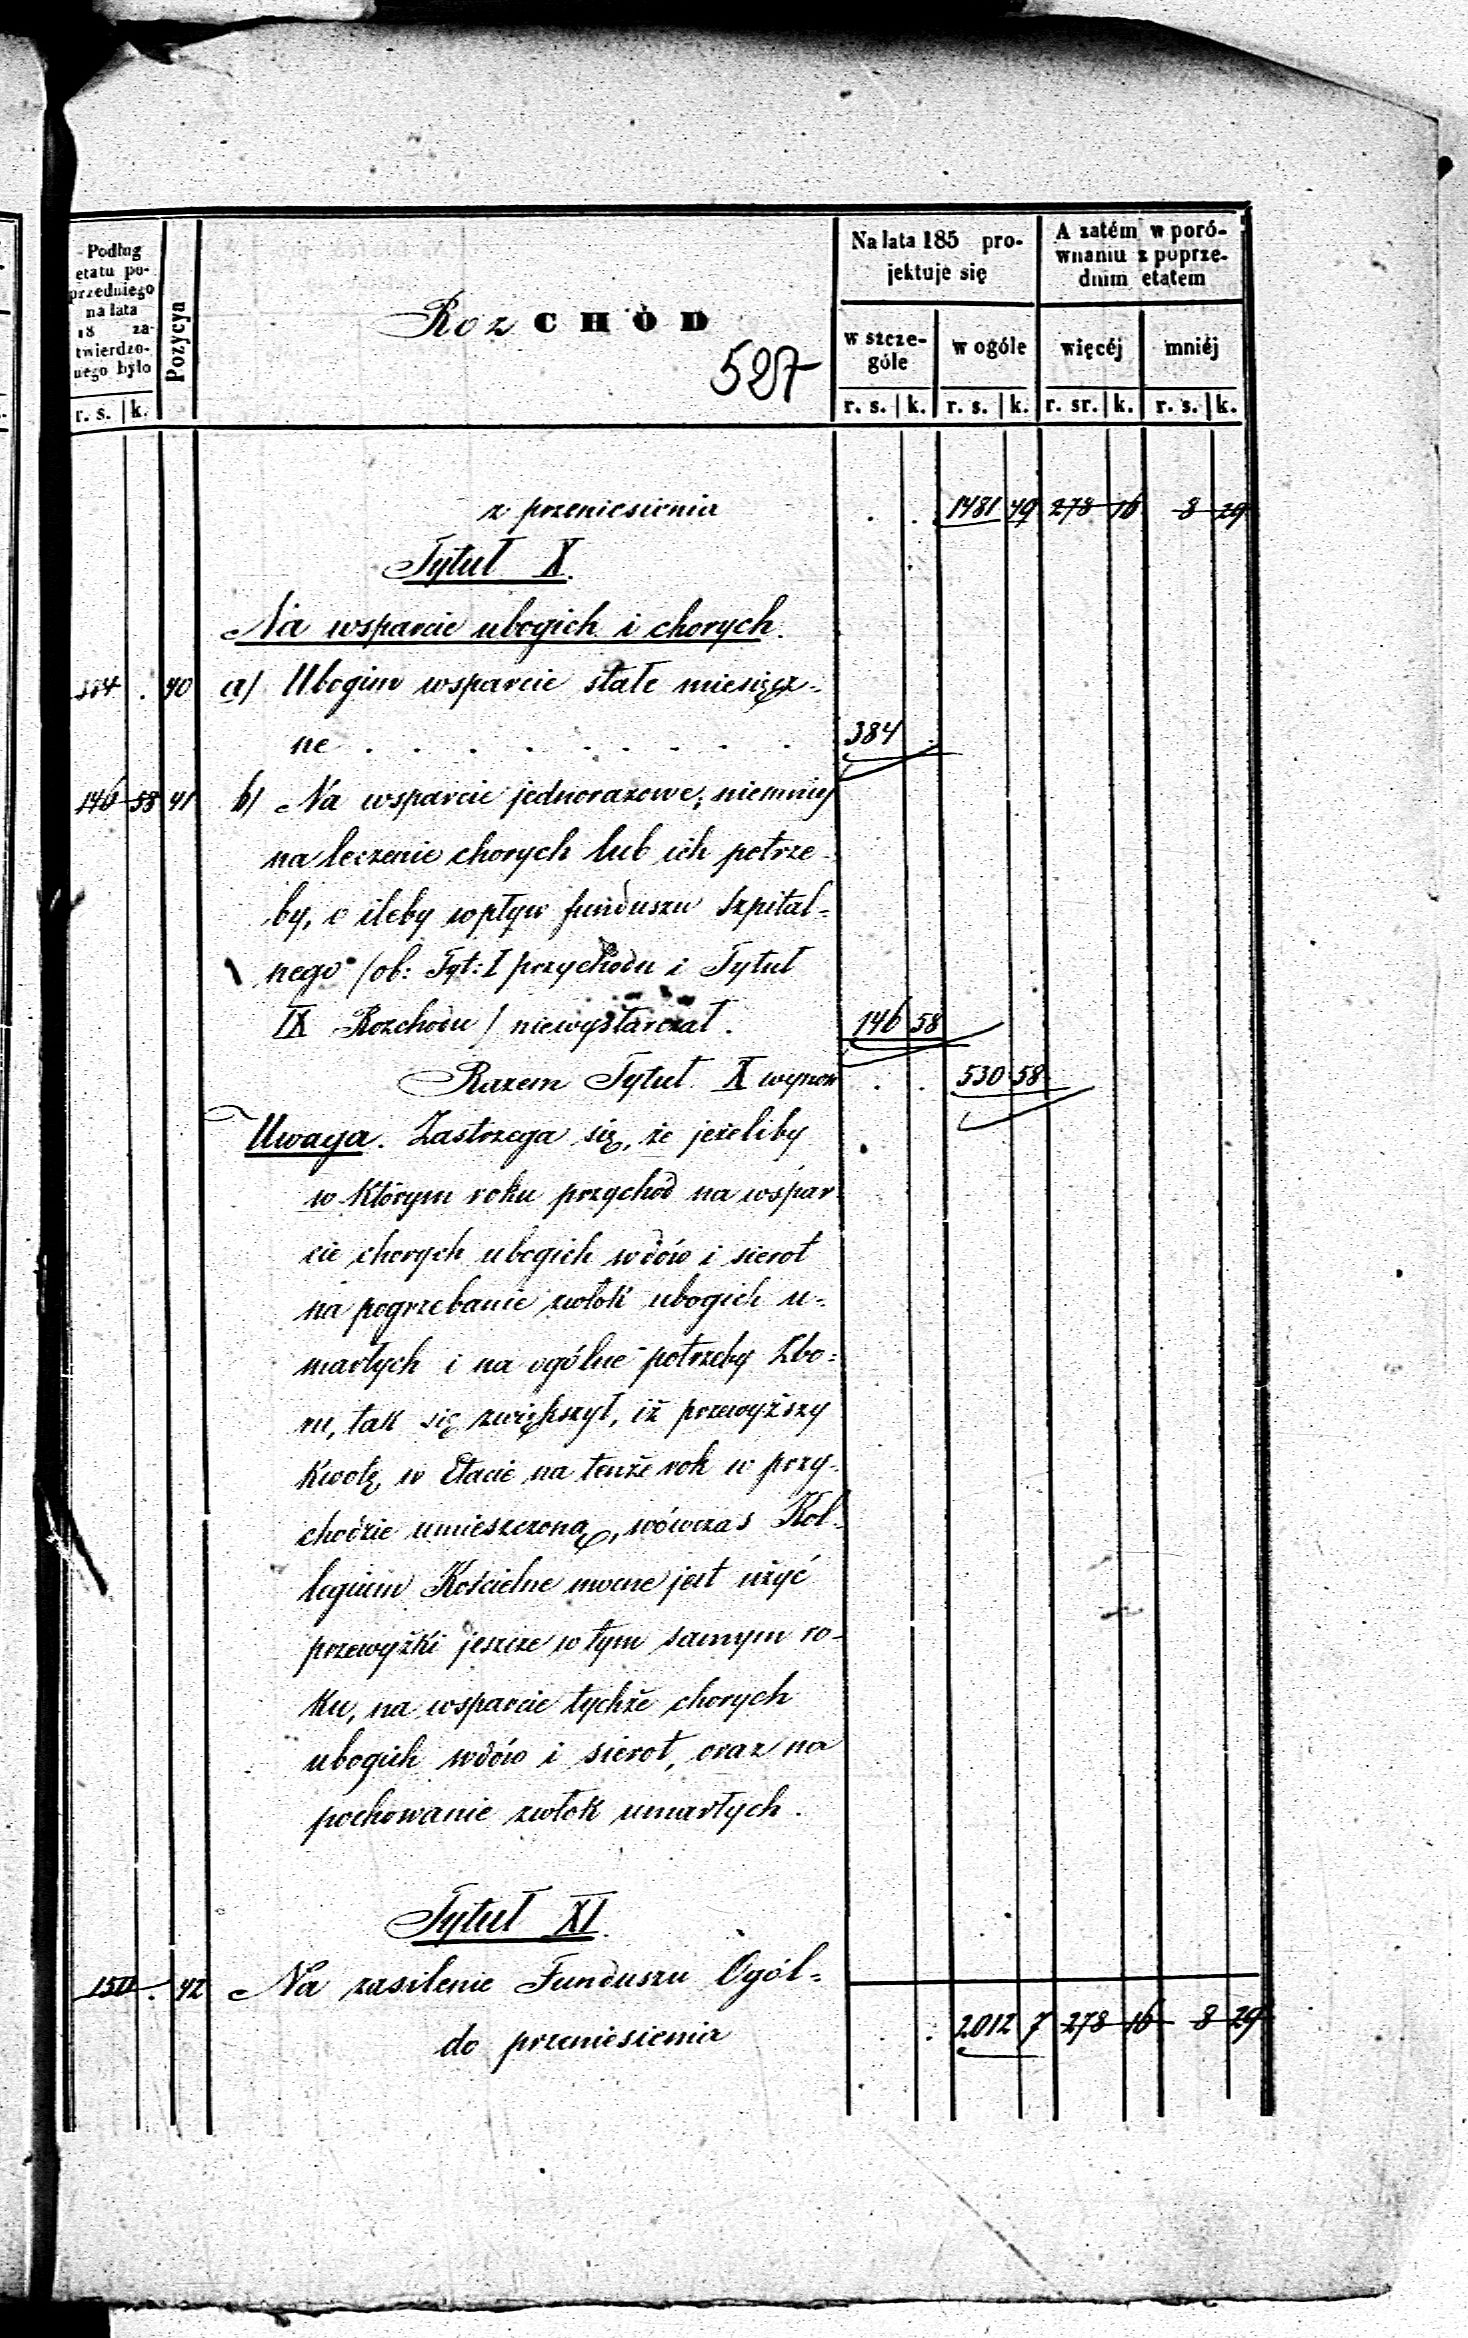 Podług etatu poprzedniego na lata 18 zatwierdzonego było
Pozycya
Roz CHÓD
527
Na lata 185 projektuje się
A zatém w porównaniu z poprzednim etatem
w szczególe
w ogóle
więcéj
mniéj
r. s. k. r. s. k. r. s. k. r. sr. k. r. s. k.
z przeniesienia . . 1481 49 278 16 8 29
Tytuł X.
Na wsparcie ubogich i chorych.
384 . 40 a/ Ubogim wsparcie stałe miesięcz=
ne . . . . . . . . . 384 .
146 58 41 b/ Na wsparcie jednorazowe, niemniej
na leczenie chorych lub ich potrze-
by, o ileby wpływ funduszu Szpital=
nego /ob: Tyt: I przychodu i Tytuł
IX Rozchodu/ niewystarczał. 146 58
Razem Tytuł X wynosi . . 530 58
Uwaga. Zastrzega się, że jeżeliby
w którym roku przychód na wspar
cie chorych ubogich wdów i sierot
na pogrzebanie zwłok ubogich u=
marłych i na ogólne potrzeby Zbo=
ru, tak się zwiększył, iż przewyższy
kwotę w Etacie na tenże rok w przy-
chodzie umieszczoną, wówczas Kol-
legium Kościelne mocne jest użyć
przewyżki jeszcze w tym samym ro-
ku, na wsparcie tychże chorych
ubogich wdów i sierot, oraz na
pochowanie zwłok umarłych.
Tytuł XI.
150 . 42 Na zasilenie Funduszu Ogól=
do przeniesienia . . 2012 7 278 16 8 29